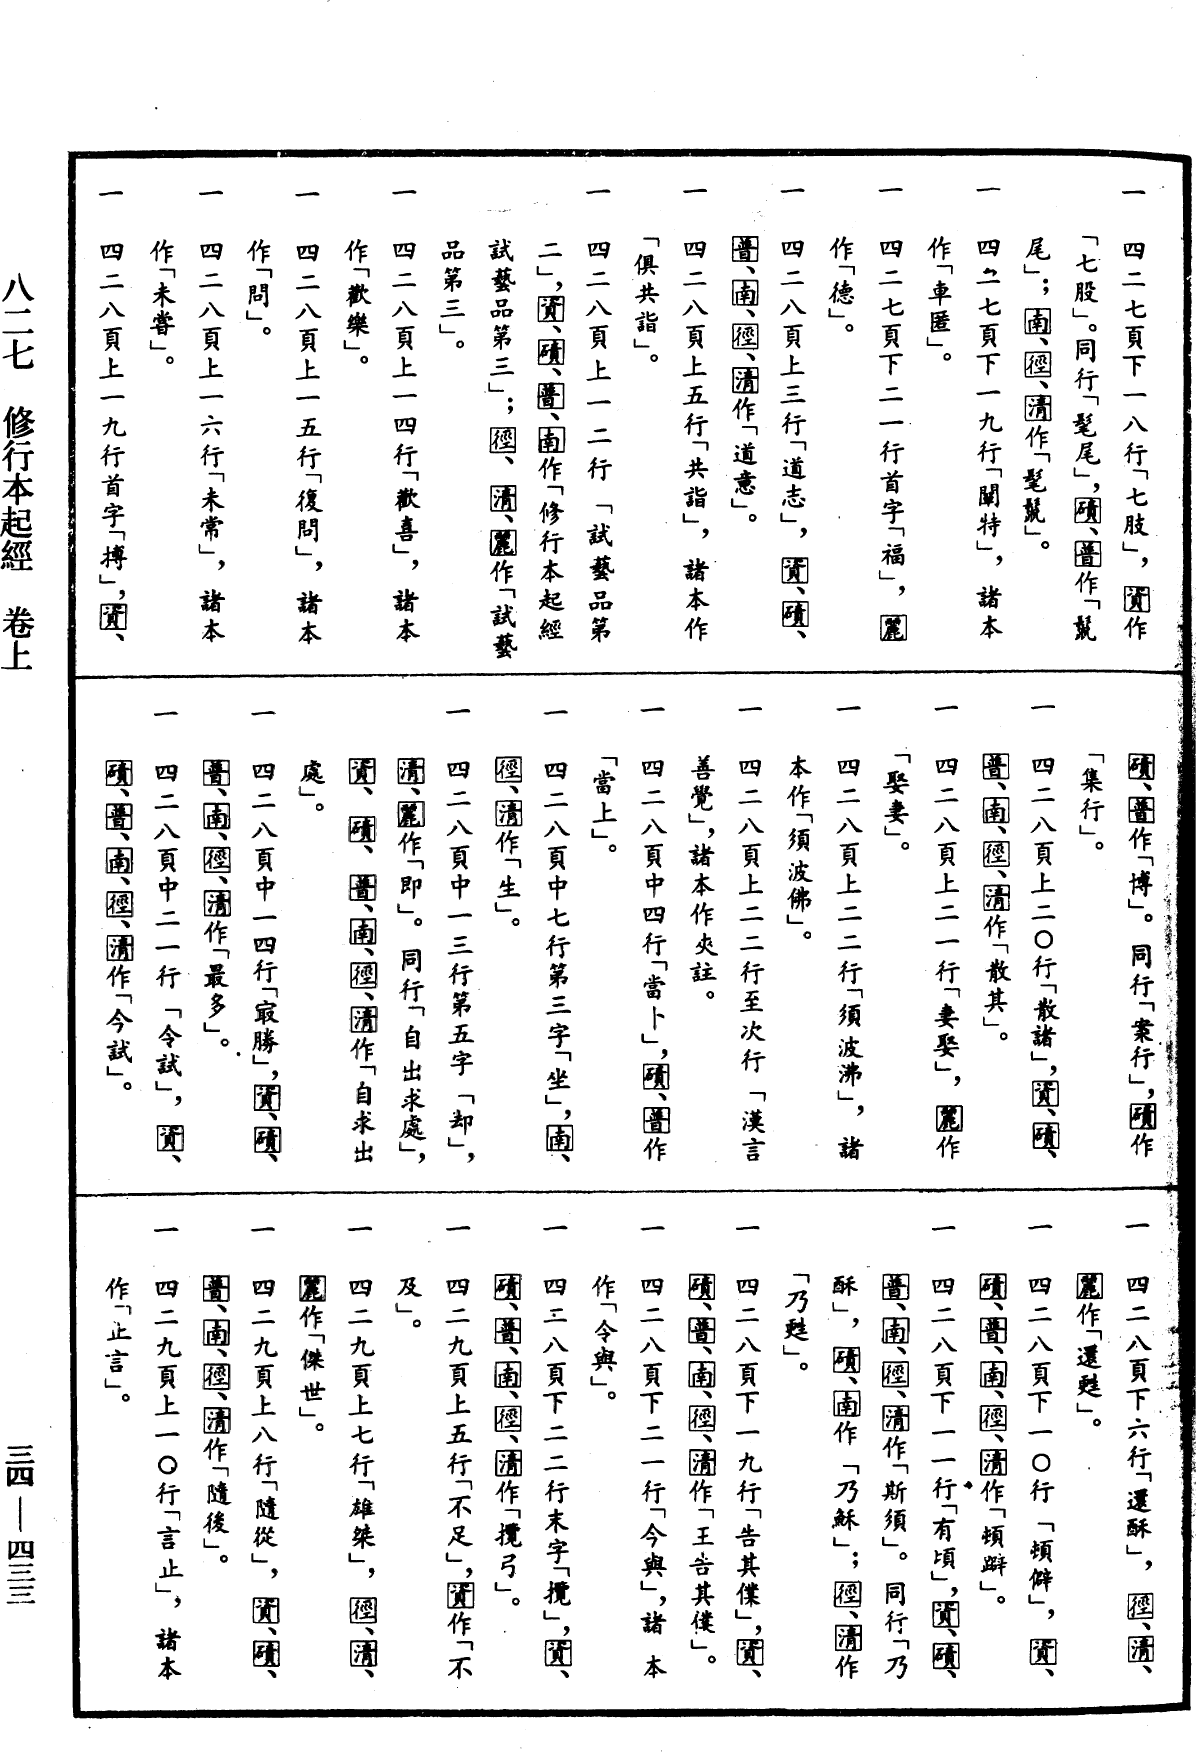 一　四二七頁下一八行「七肢」，資作
「七股」。同行「髦尾」，磧、普作「鬣
尾」；南、徑、清作「髦鬣」。
一　四二七頁下一九行「闡特」，諸本
作「車匿」。
一　四二七頁下二一行首字「福」，麗
作「德」。
一　四二八頁上三行「道志」，資、磧、
普、南、徑、清作「道意」。
一　四二八頁上五行「共詣」，諸本作
「俱共詣」。
一　四二八頁上一二行「試藝品第
二」，資、磧、普、南作「修行本起經
試藝品第三」；徑、清、麗作「試藝
品第三」。
一　四二八頁上一四行「歡喜」，諸本
作「歡樂」。
一　四二八頁上一五行「復問」，諸本
作「問」。
一　四二八頁上一六行「未常」，諸本
作「未嘗」。
一　四二八頁上一九行首字「摶」，資、
磧、普作「博」。同行「案行」，磧作
「集行」。
一　四二八頁上二〇行「散諸」，資、磧、
普、南、徑、清作「散其」。
一　四二八頁上二一行「妻娶」，麗作
「娶妻」。
一　四二八頁上二二行「須波沸」，諸
本作「須波佛」。
一　四二八頁上二二行至次行「漢言
善覺」，諸本作夾註。
一　四二八頁中四行「當卜」，磧、普作
「當上」。
一　四二八頁中七行第三字「坐」，南、
徑、清作「生」。
一　四二八頁中一三行第五字「却」，
清、麗作「即」。同行「自出求處」，
資、磧、普、南、徑、清作「自求出
處」。
一　四二八頁中一四行「㝡勝」，資、磧、
普、南、徑、清作「最多」。
一　四二八頁中二一行「令試」，資、
磧、普、南、徑、清作「今試」。
一　四二八頁下六行「還酥」，徑、清、
麗作「還甦」。
一　四二八頁下一〇行「頓僻」，資、
磧、普、南、徑、清作「頓躃」。
一　四二八頁下一一行「有頃」，資、磧、
普、南、徑、清作「斯須」。同行「乃
酥」，磧、南作「乃穌」；徑、清作
「乃甦」。
一　四二八頁下一九行「告其僕」，資、
磧、普、南、徑、清作「王告其僕」。
一　四二八頁下二一行「今與」，諸本
作「令與」。
一　四二八頁下二二行末字「攬」，資、
磧、普、南、徑、清作「攬弓」。
一　四二九頁上五行「不足」，資作「不
及」。
一　四二九頁上七行「雄桀」，徑、清、
麗作「傑世」。
一　四二九頁上八行「隨從」，資、磧、
普、南、徑、清作「隨後」。
一　四二九頁上一〇行「言止」，諸本
作「止言」。
八二七　修行本起經　卷上
三四—四三三